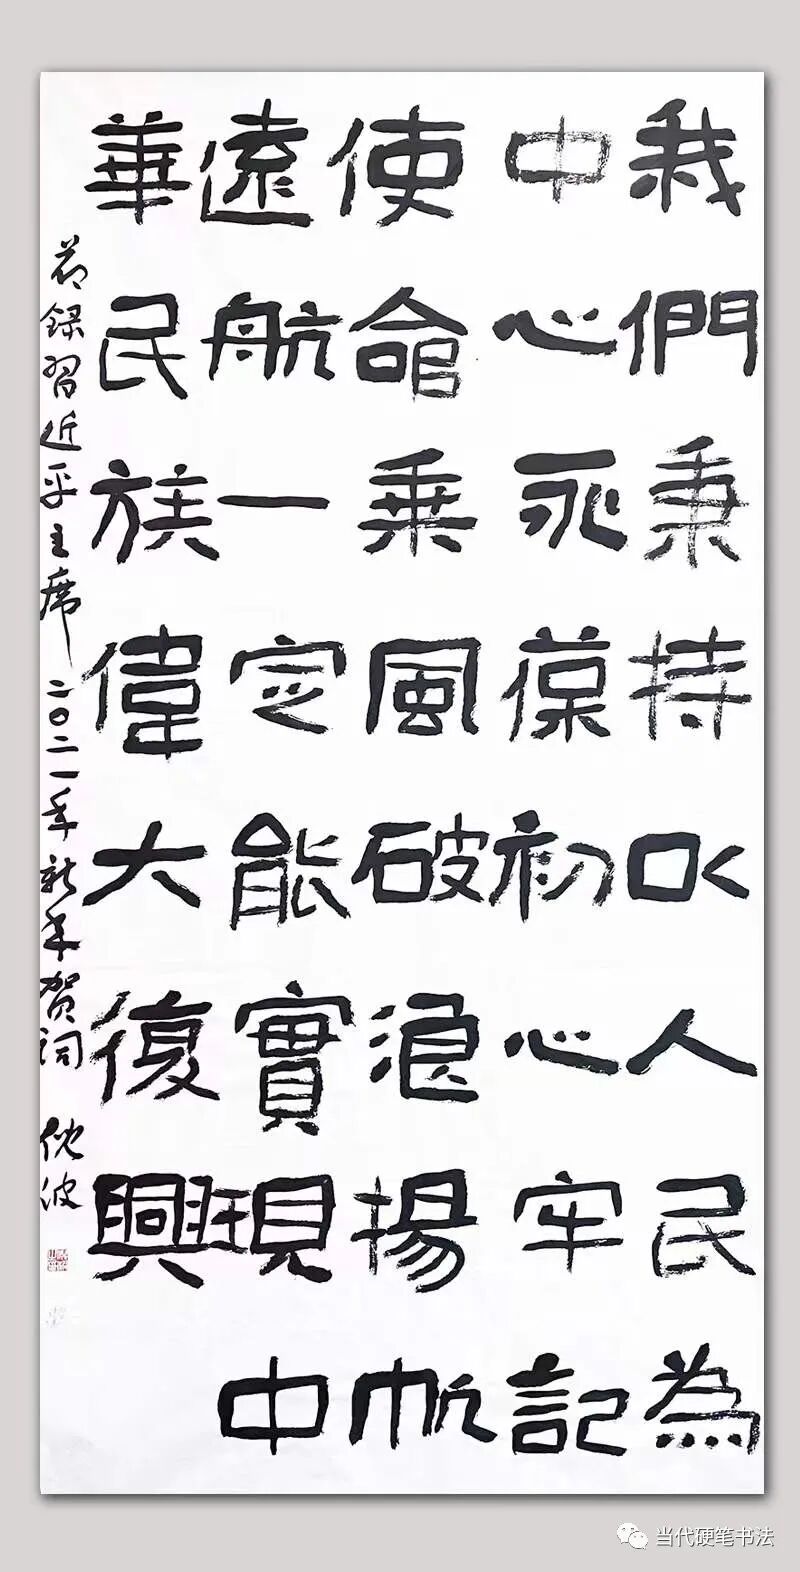 我們秉持以人民為
中心永葆初心牢記
使命乘風破浪揚帆
遠航一定能實現中
華民族偉大復興
節錄習近平主席二〇二一年新年贺词 倪波
当代硬笔书法